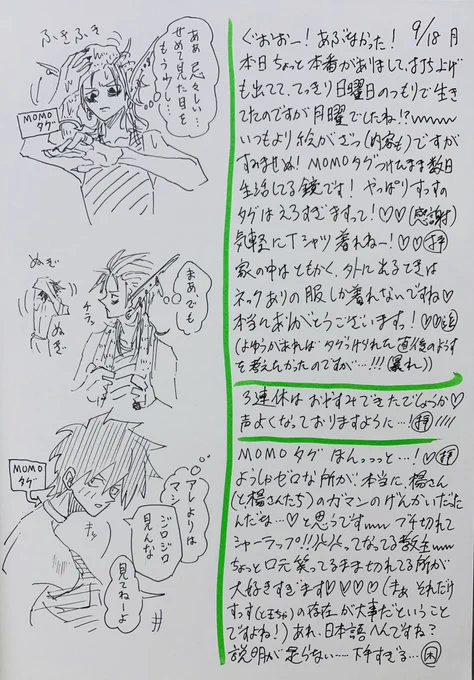 9/18 月
ぐおおー！あぶなかった！
本日ちょっと本番がありまして、打ち上げ
も出てて、てっきり日曜日のつもりで生き
てたのですが月曜でしたね!?
いつもより絵がざつ(内容も)ですが
すみませぬ！MOMOタグつけたまま数日
生活してる鏡です！やっぱりすっすの
タグはえろすぎますって！♡♡(感謝)
気軽にTシャツ着れねー！♡♡
家の中はともかく、外に出るときは
ネックありの服しか着れないですね♡
本当にありがとうございますっ！♡♡
(よゆうがあれば タグつけられた直後のようす
を考えたかったのですが…!!!(暴れ))
3連休はおやすみできたでしょうか♡
声よくなっておりますように…!
MOMOタグ ほんっっっと…！♡
ようしゃゼロな所が本当に、楊さん
(と楊さんたち)のガマンのげんかいだった
んだな…♡と思うです ブチ切れて
シャーラップ!!ってなってる教主
ちょっと口元笑ってるまま切れてる所が
大好きすぎます♡♡♡♡(まあ それだけ
すっす(と王ちゃ)の存在が大事だということ
ですよね！)あれ、日本語へんですね？
説明が足らない…下手すぎる…
ふきふき
ああ 忌々しい…
せめて見た目を
もうちょい…
MOMO
タグ
まあでも
チラ
ぬぎ
ぬぎ
MOMO
タグ
アレよりは
マシ
ジロジロ
見んな
見てねーよ